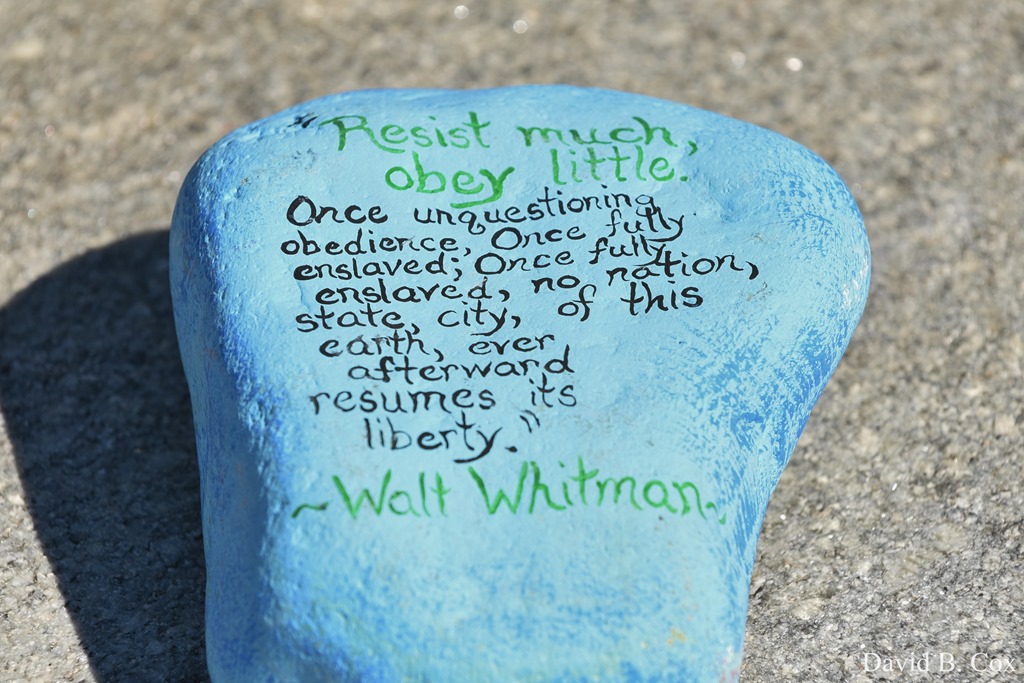 "Resist much,
obey little.
Once unquestioning
obedience, Once fully
enslaved; Once fully
enslaved, no nation,
state, city, of this
earth, ever
afterward
resumes its
liberty."
~Walt Whitman~
David B. Cox